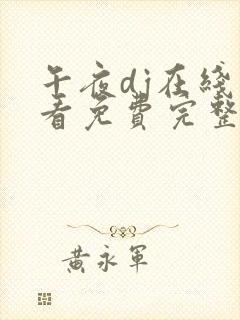 午夜dj在线
看免费完整
黄永军